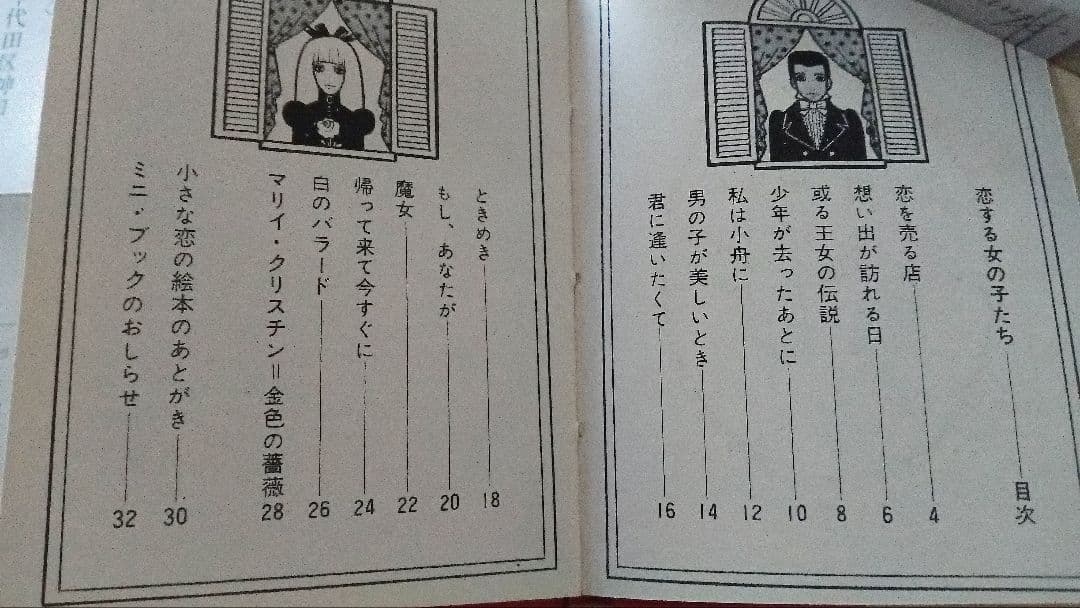 恋する女の子たち――目次
恋を売る店――4
想い出が訪れる日――6
或る王女の伝説――8
少年が去ったあとに――10
私は小舟に――12
男の子が美しいとき――14
君に逢いたくて――16
ときめき――18
もし、あなたが――20
魔女――22
帰って来て今すぐに――24
白のバラード――26
マリイ・クリスチン＝金色の薔薇 28
小さな恋の絵本のあとがき――30
ミニ・ブックのおしらせ――32